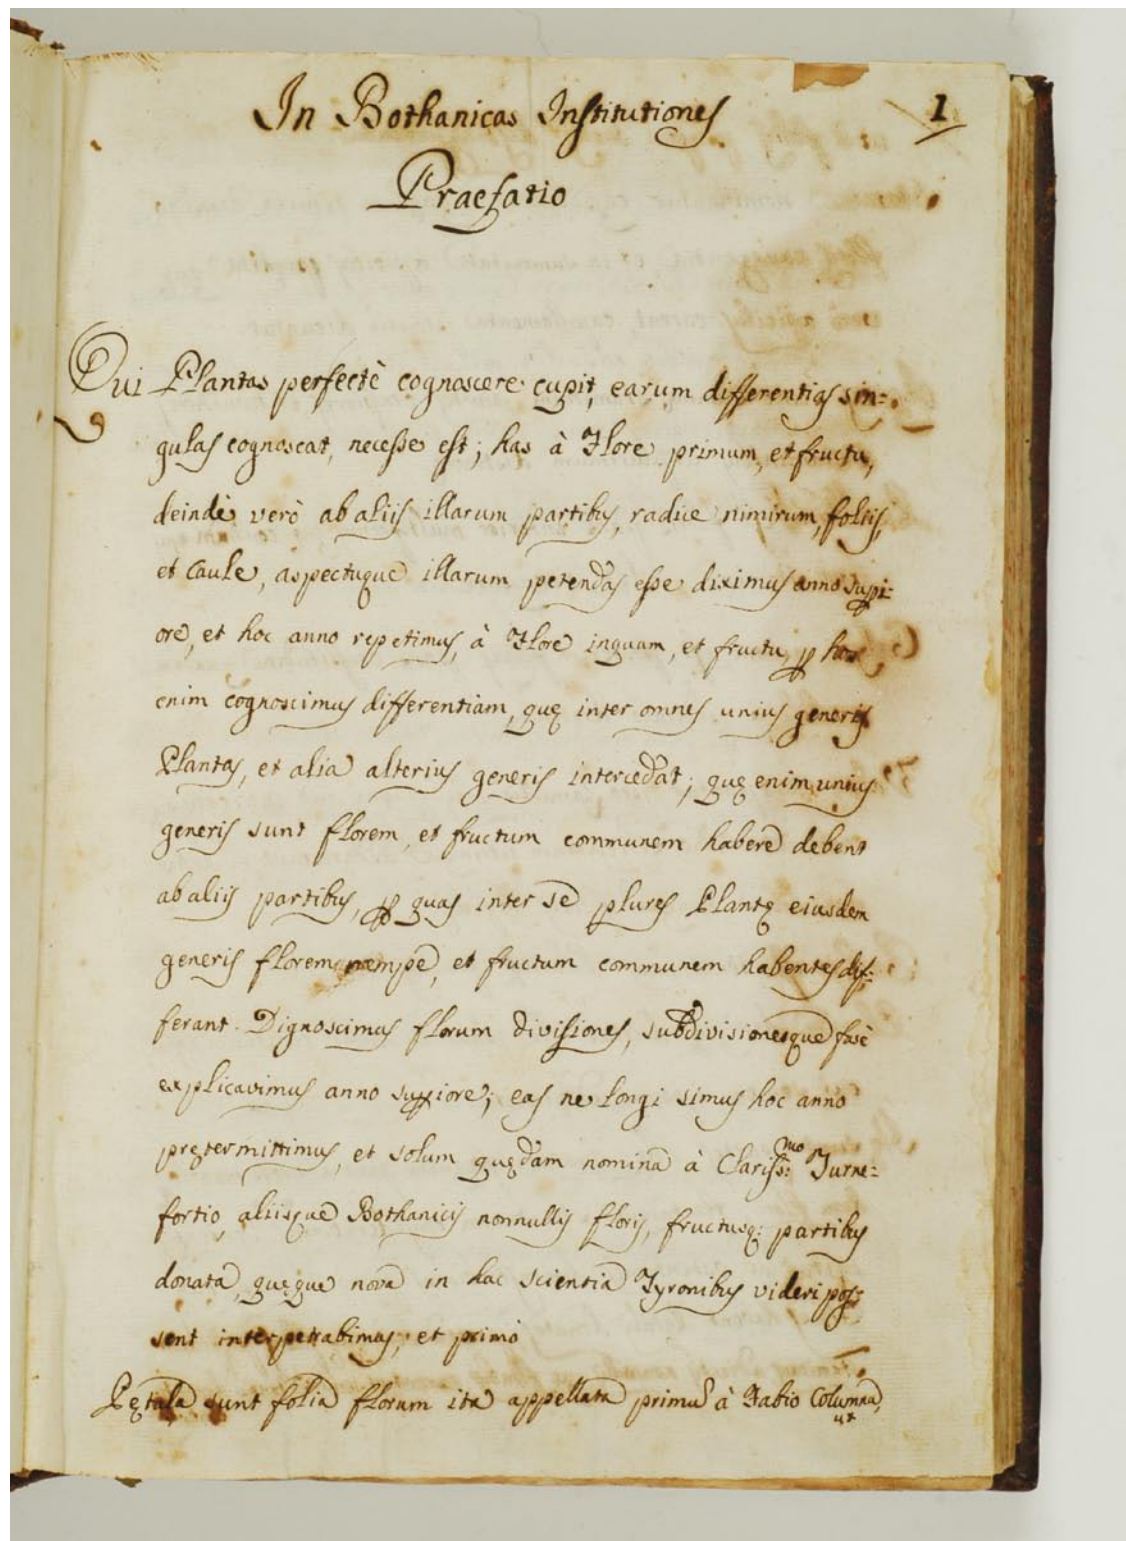 In Bothanicas Institutiones
1
Praefatio
Qui Plantas perfectè cognoscere cupit, earum differentias sin=
gulas cognoscat, necesse est; has à Flore primum, et fructu,
deindè verò ab aliis illarum partibus, radice nimirum, foliis,
et Caule, aspectuque illarum petendas esse diximus anno supi=
ore, et hoc anno repetimus, à Flore inquam, et fructu, p hos
enim cognoscimus differentiam, quę inter omnes unius generis
Plantas, et alia alterius generis intercedat; quę enim unius
generis sunt florem, et fructum communem habere debent
ab aliis partibus, p quas inter se plures Plantę eiusdem
generis florem nempe, et fructum communem habentes dif=
ferant. Dignoscimus florum divisiones, subdivisionesque fusè
explicavimus anno supiore; eas ne longi simus hoc anno
prętermittimus, et solum quędam nomina à Clariss:mo Turne=
fortio, aliisque Bothanicis nonnullis floris, fructusq: partibus
donata, quęque nova in hac scientia Tyronibus videri pos=
sent interpetrabimus, et primò
Pętala sunt folia florum ita appellata primũ à Fabio Columna,
ut